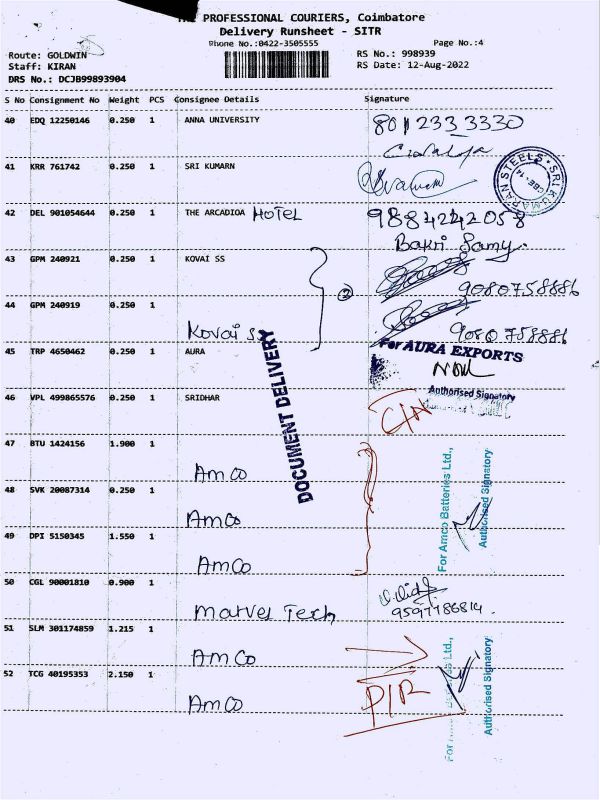 PROFESSIONAL COURIERS, Coimbatore
Delivery Runsheet - SITR
Phone No.:0422-3505555
Page No.:4
Route: GOLDWIN
Staff: KIRAN
DRS No.: DCJB99893904
RS No.: 998939
RS Date: 12-Aug-2022
S No Consignment No Weight PCS Consignee Details Signature
40 EDQ 12250146 0.250 1 ANNA UNIVERSITY 8012333330
41 KRR 761742 0.250 1 SRI KUMARN
SRI KUMARAN STEELS
CBE-14
42 DEL 901054644 0.250 1 THE ARCADIOA HOTEL 9884242058
Bakri Samy.
43 GPM 240921 0.250 1 KOVAI SS 9080758886
2
44 GPM 240919 0.250 1 Kovai SS 9080758886
45 TRP 4650462 0.250 1 AURA
For AURA EXPORTS
Authorised Signatory
46 VPL 499865576 0.250 1 SRIDHAR
DOCUMENT DELIVERY
47 BTU 1424156 1.900 1 Amco
48 SVK 20087314 0.250 1 Amco
49 DPI 5150345 1.550 1 Amco
For Amco Batteries Ltd.,
Authorised Signatory
50 CGL 90001810 0.900 1 Marvel Tech
9597786814.
51 SLM 301174859 1.215 1 Amco
52 TCG 40195353 2.150 1 Amco
P/R
Authorised Signatory